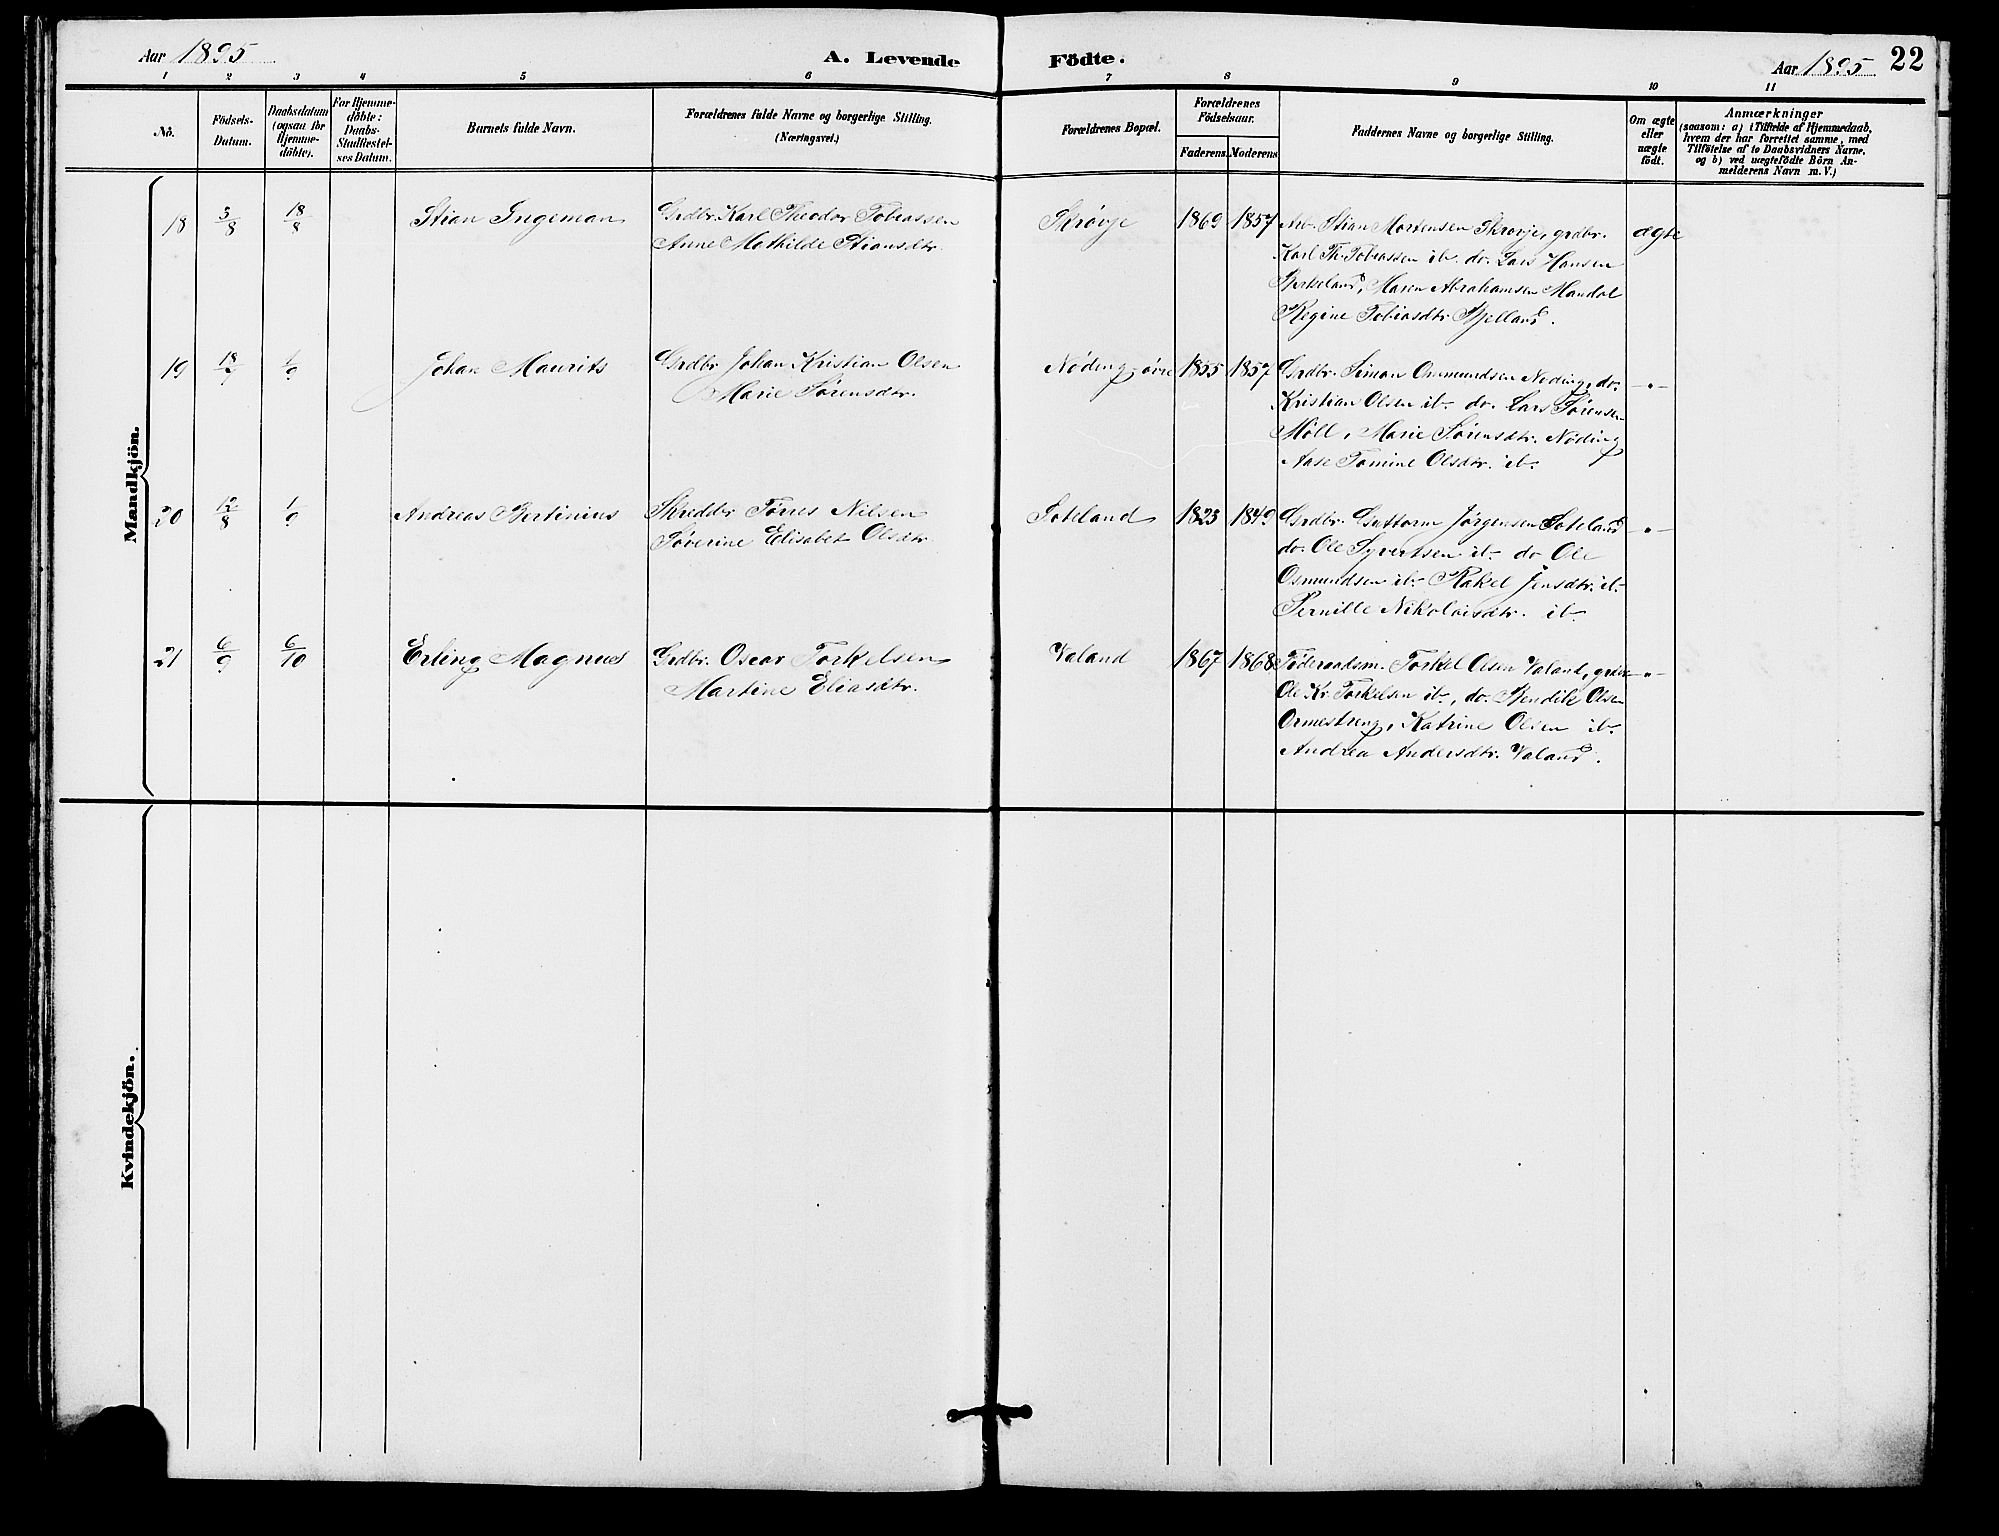 Aar 1895
A. Levende Födte.
Aar 1895 22
1 2 3 4 5 6 7 8 9 10 11
No.
Födsels-
Datum.
Daabsdatum
(ogsaa for
Hjemme-
döbte).
For Hjemme-
döbte:
Daabs-
Stadfæstel-
ses Datum.
Barnets fulde Navn.
Forældrenes fulde Navne og borgerlige Stilling.
(Næringsvei.)
Forældrenes Bopæl.
Forældrenes
Födselsaar.
Faderens. Moderens.
Faddernes Navne og borgerlige Stilling.
Om ægte
eller
uægte
födt.
Anmærkninger
(saasom: a) i Tilfælde af Hjemmedaab,
hvem der har forrettet samme, med
Tilföielse af to Daabsvidners Navne.
og b) ved uægtefödte Börn An-
melderens Navn m. V.)
Mandkjön.
18 3/8 18/8 Stian Ingeman Grdbr. Karl Theodor Tobiassen Skrøvje 1869 1857 Arb. Stian Mortensen Skrøvje, grdbr. ægte
Anne Mathilde Stiansdtr. Karl Th. Tobiassen ib. do. Lars Hansen
Birkeland, Maren Abrahamsen Mandal
Regine Tobiasdtr. Bjelland.
19 18/7 1/9 Johan Maurits Grdbr Johan Kristian Olsen Nøding øvre 1855 1857 Grdbr. Simon Ommundsen Nøding, do. -"-
Marie Sørensdtr. Kristian Olsen ib. do. Lars Sørensen
Möll, Marie Sørensdtr. Nøding
Aase Tomine Olsdtr. ib.
20 12/8 1/9 Andreas Bertinius Skreddr Tønes Nilsen Foteland 1823 1849 Grdbr. Guttorm Jørgensen Foteland -"-
Søverine Elisabet Olsdtr do. Ole Syvertsen ib. do Ole
Osmundsen ib. Rakel Jensdtr. ib.
Pernille Nikolaisdtr. ib.
21 6/9 6/10 Erling Magnus Grdbr. Oscar Torkelsen Valand 1867 1868 Føderaadsm. Torkel Olsen Valand, grdbr. -"-
Martine Eliasdtr. Ole Kr. Torkelsen ib., do. Bendik Olsen
Ormestreng, Katrine Olsen ib.
Andrea Andersdtr. Valand.
Kvindekjön.